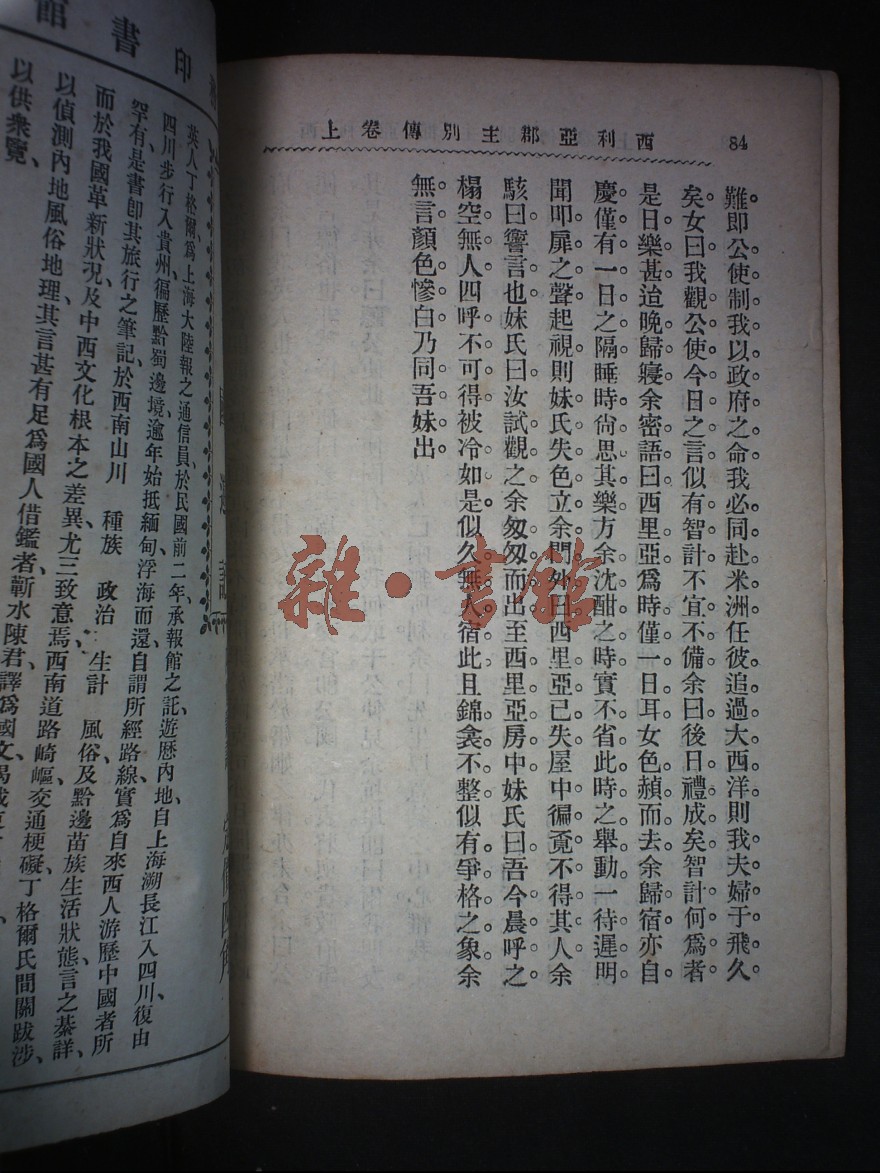 84
西利亞郡主別傳卷上
難。即公使制我以政府之命。我必同赴米洲。任彼追過大西洋。則我夫婦于飛久
矣。女曰。我觀公使今日之言。似有智計。不宜不備。余曰。後日禮成矣。智計何爲者。
是日樂甚。迨晚歸寢。余密語曰。西里亞爲時僅一日耳。女色赬而去。余歸宿。亦自
慶僅有一日之隔。睡時尙思其樂。方余沈酣之時。實不省此時之舉動。一待遲明。
聞叩扉之聲。起視。則妹氏失色立余門外曰。西里亞已失。屋中徧覔不得其人。余
駭曰。讆言也。妹氏曰。汝試觀之。余匆匆而出。至西里亞房中。妹氏曰。吾今晨呼之。
榻空無人。四呼不可得。被冷如是。似久無人宿此。且錦衾不整。似有爭格之象。余
無言。顏色慘白。乃同吾妹出。
雜·書館
印書館
英人丁格爾、爲上海大陸報之通信員、於民國前二年、承報館之託、遊歷內地、自上海溯長江入四川、復由
四川步行入貴州、徧歷黔蜀邊境、逾年始抵緬甸、浮海而還、自謂所經路線、實爲自來西人游歷中國者所
罕有、是書卽其旅行之筆記、於西南山川 種族 政治 生計 風俗及黔邊苗族生活狀態、言之綦詳、
而於我國革新狀況、及中西文化根本之差異、尤三致意焉、西南道路崎嶇、交通梗礙、丁格爾氏間關跋涉、
以偵測內地風俗地理、其言甚有足爲國人借鑑者、蘄水陳君、譯爲國文
以供衆覽、